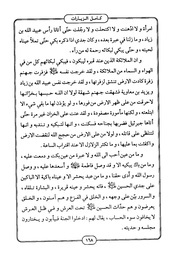 كامل الزيارات
امرأة ولا ادهنت ولا اكتحلت ولا رجلت حتى أتانا رأس عبيد الله بن
زياد ، وما زلنا في عبرة بعده ، وكان جدي إذا ذكره بكى حتى تملأ عيناه
لحيته ، وحتى يبكي لبكائه رحمة له من رآه .
وإن الملائكة الذين عند قبره ليبكون ، فيبكي لبكائهم كل من في
الهواء والسماء من الملائكة ، ولقد خرجت نفسه فزفرت جهنم
زفرة كادت الأرض تنشق لزفرتها ، ولقد خرجت نفس عبيد الله بن زياد
ويزيد بن معاوية فشهقت جهنم شهقة لولا أن الله حبسها بخزانها
لأحرقت من على ظهر الأرض من فورها ، ولو يؤذن لها ما بقي شيء
إلا ابتلعته ، ولكنها مأمورة مصفودة ، ولقد عتت على الخزان غير مرة
حتى أتاها جبرئيل فضربها بجناحه فسكنت ، وإنها لتبكيه وتندبه وإنها
لتتلظى على قاتله ، ولولا من على الأرض من حجج الله لنقضت الأرض
وأكفأت بما عليها ، وما تكثر الزلازل إلا عند اقتراب الساعة .
وما من عين أحب إلى الله ولا عبرة من عين بكت ودمعت عليه ،
وما من باك يبكيه إلا وقد وصل فاطمة وأسعدها عليه ، ووصل
رسول الله وأدى حقنا ، وما من عبد يحشر إلا وعيناه باكية إلا الباكين
على جدي الحسين ، فإنه يحشر وعينه قريرة ، والبشارة تلقاه ،
والسرور بين على وجهه ، والخلق في الفزع وهم آمنون ، والخلق
يعرضون وهم حداث الحسين تحت العرش وفي ظل العرش
لا يخافون سوء الحساب ، يقال لهم : ادخلوا الجنة فيأبون ويختارون
مجلسه وحديثه .
١٦٨